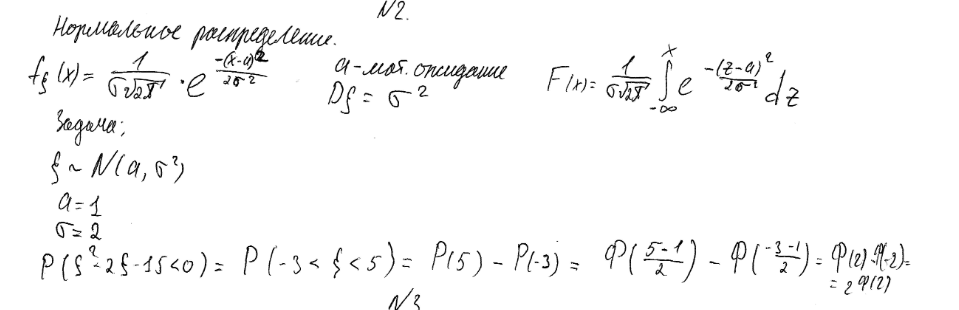 N2.
Нормальное распределение.
f_ξ(x) = 1/(σ√2π) · e^(-(x-a)²/2σ²) a-мат. ожидание F(x) = 1/(σ√2π) ∫_{-∞}^{x} e^(-(z-a)²/2σ²) dz
Dξ = σ²
Задача:
ξ ~ N(a, σ²)
a = 1
σ = 2
P(ξ²-2ξ-15<0) = P(-3 < ξ < 5) = P(5) - P(-3) = Ф((5-1)/2) - Ф((-3-1)/2) = Ф(2)-Ф(-2) =
= 2Ф(2)
N3